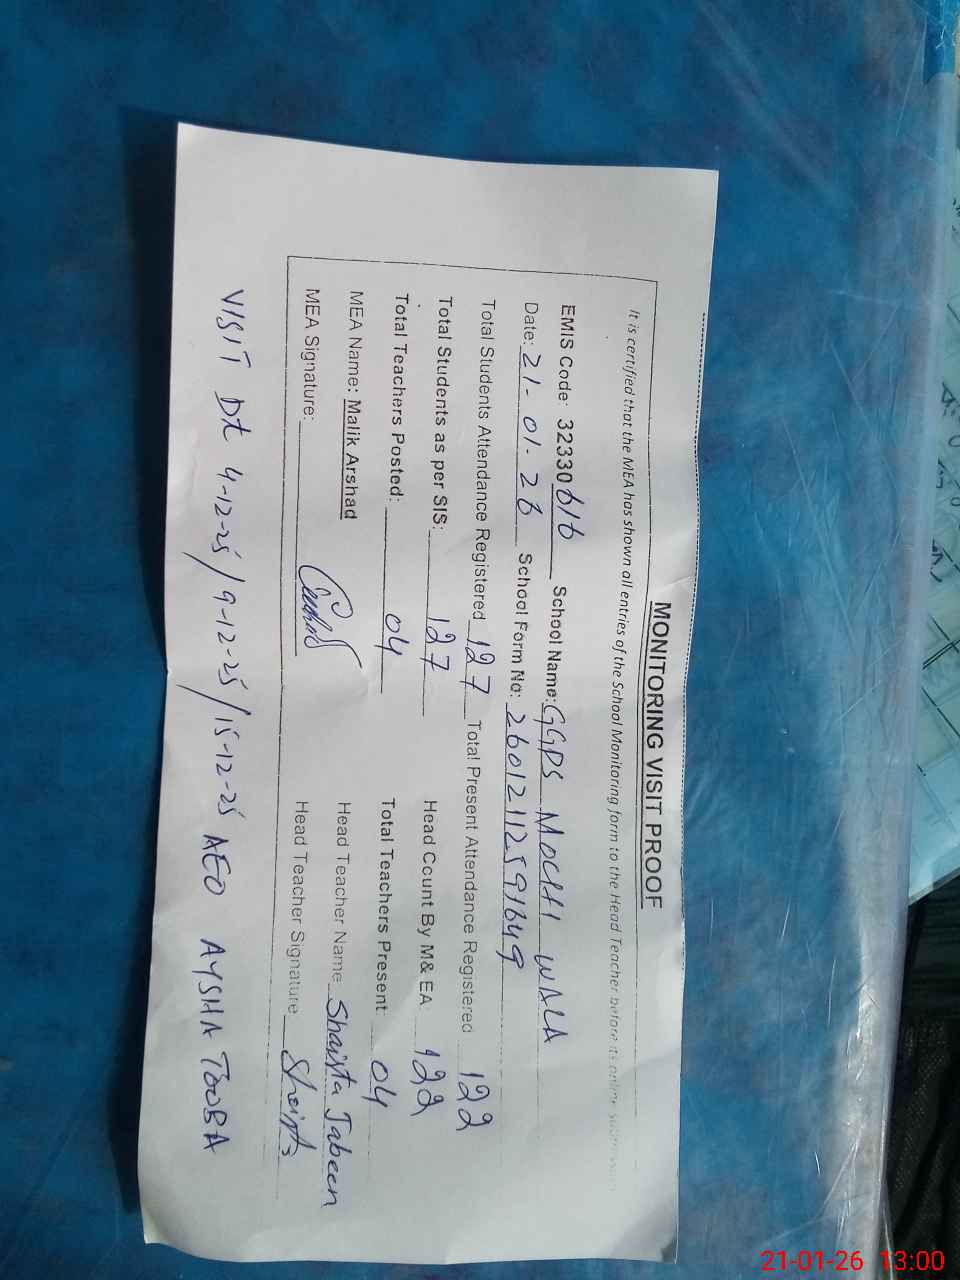 MONITORING VISIT PROOF
It is certified that the MEA has shown all entries of the School Monitoring form to the Head Teacher before its online submission
EMIS Code: 32330616 School Name: GGPS MOCHHI WALA
Date: 21-01-26 School Form No: 26012112591649
Total Students Attendance Registered 127 Total Present Attendance Registered 122
Total Students as per SIS: 127 Head Count By M& EA: 122
Total Teachers Posted: 04 Total Teachers Present 04
MEA Name: Malik Arshad Head Teacher Name Shaista Jabeen
MEA Signature: Head Teacher Signature Shaista
VISIT Dt 4-12-25/9-12-25/15-12-25 AEO AYSHA TOOBA
21-01-26 13:00